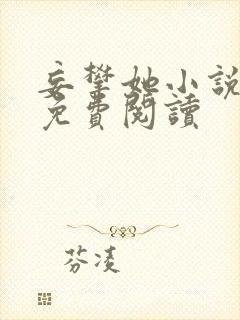 妄攀她小說
免費閱讀
芬凌